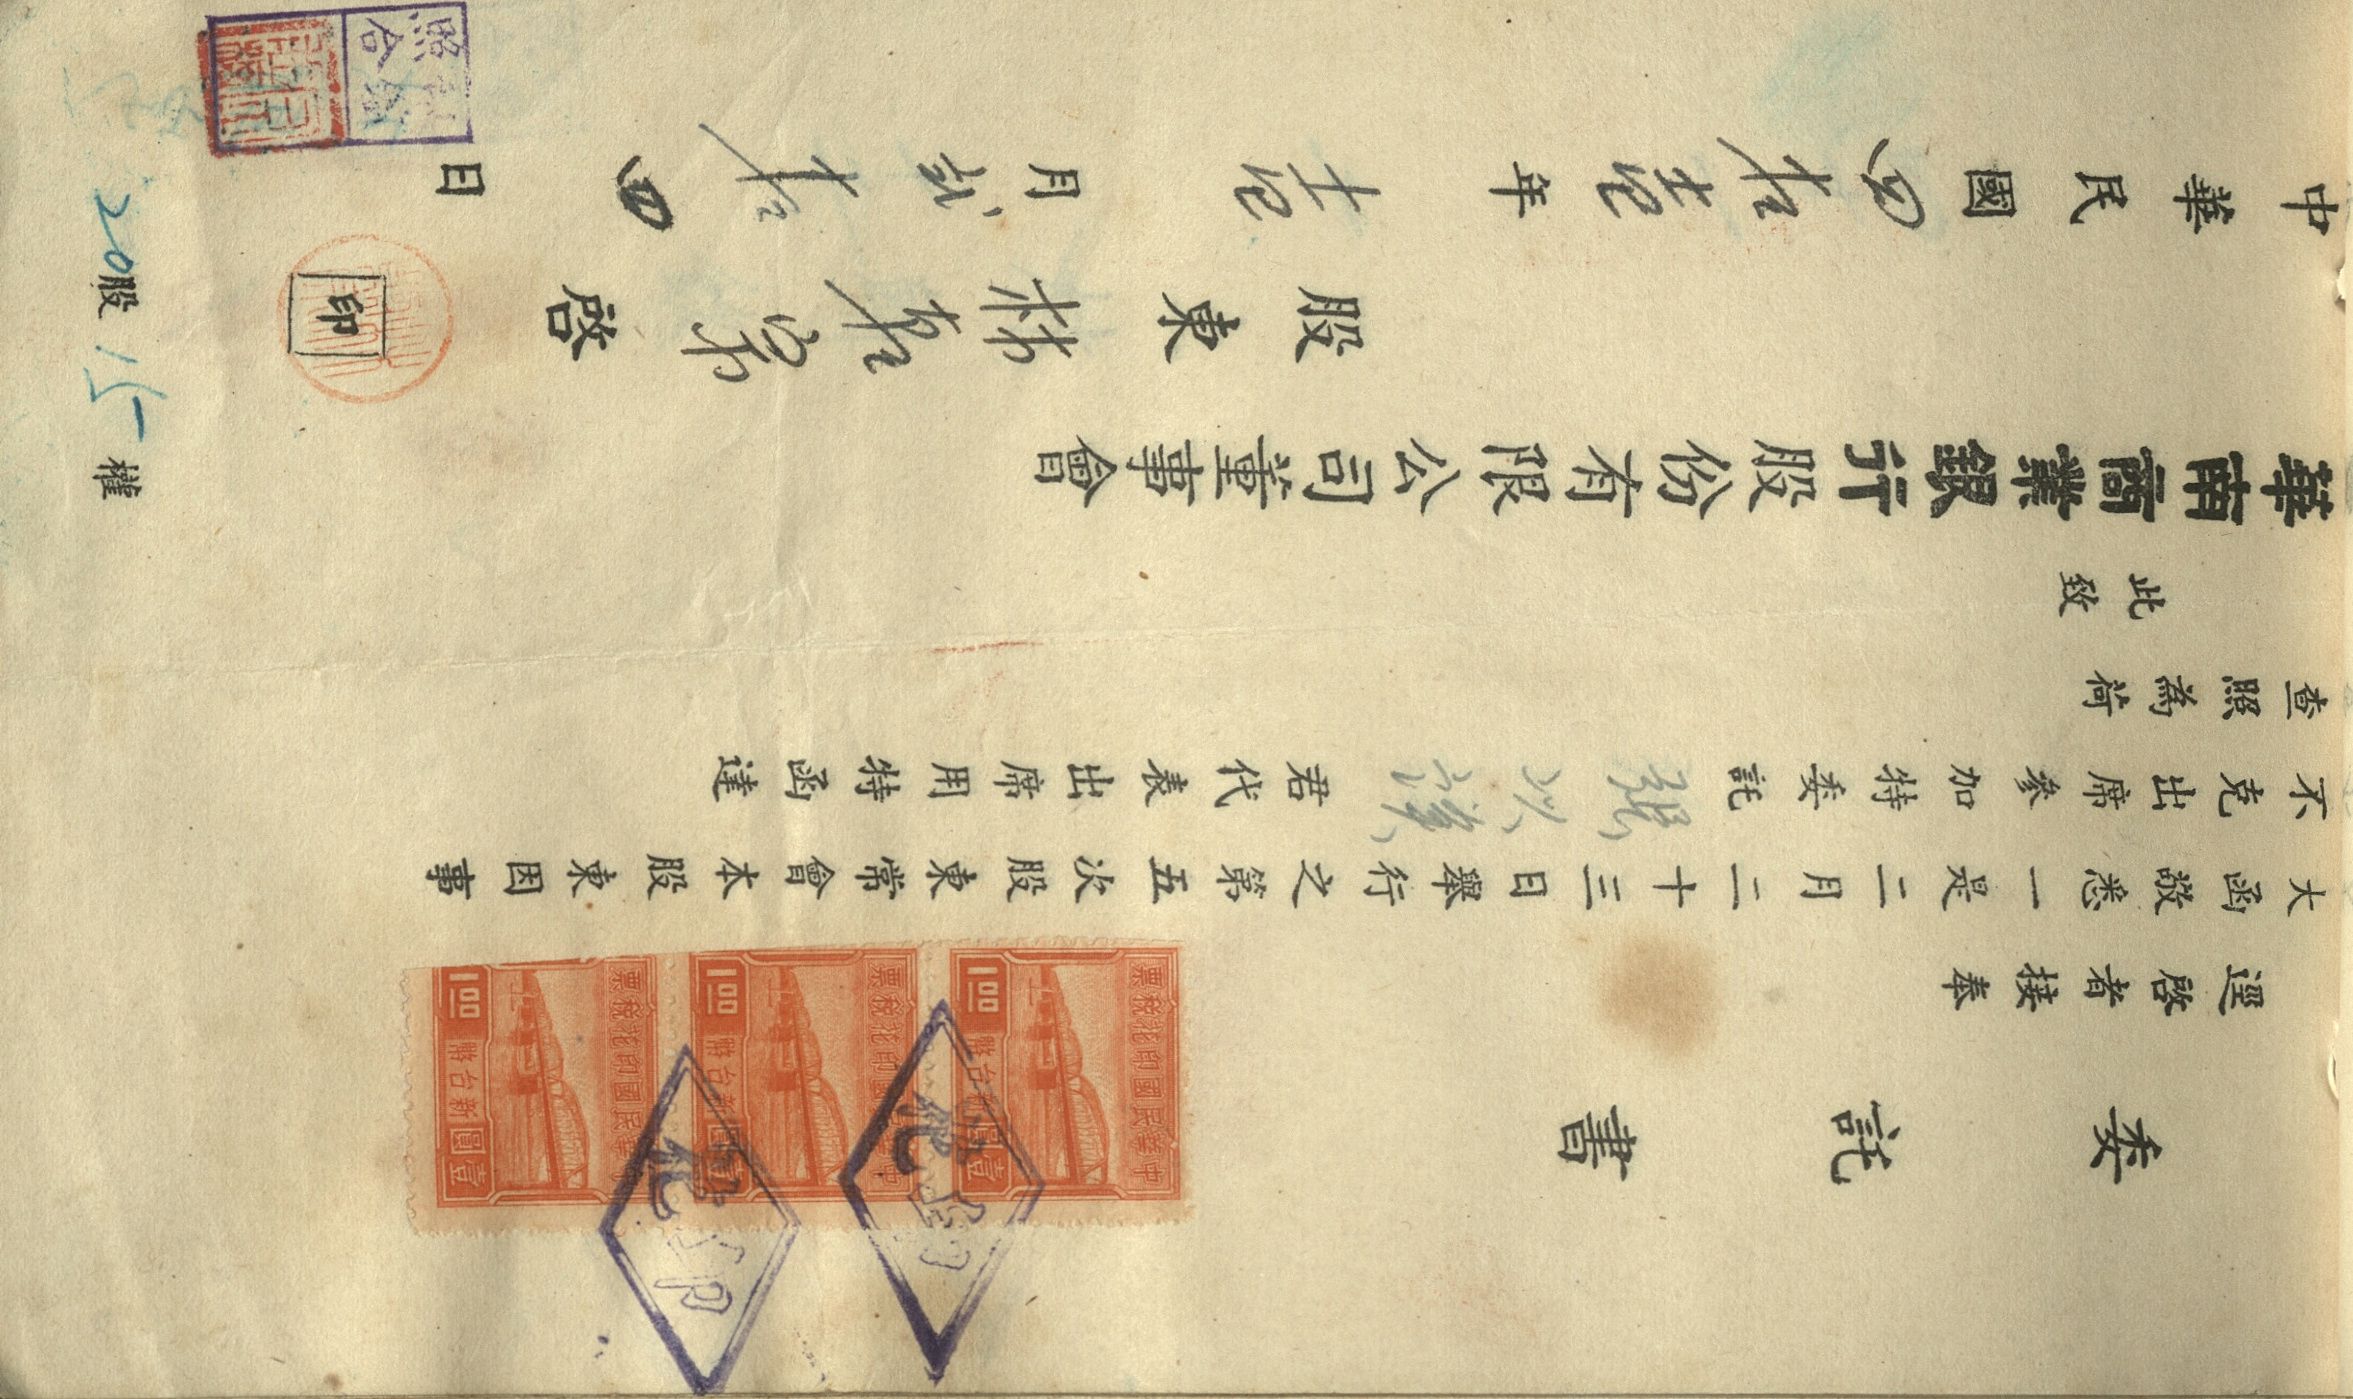 委託書
逕啓者接奉
大函敬悉一是二月二十三日舉行之第五次股東常會本股東因事
不克出席參加特委託張以謨君代表出席用特函達
查照為荷
此致
華南商業銀行股份有限公司董事會
股東林啓 印
中華民國四拾壹年壹月貳拾四日
20股15權
照合
中華民國印花稅票
新台幣
壹圓
1.00
中華民國印花稅票
新台幣
壹圓
1.00
中華民國印花稅票
新台幣
壹圓
1.00